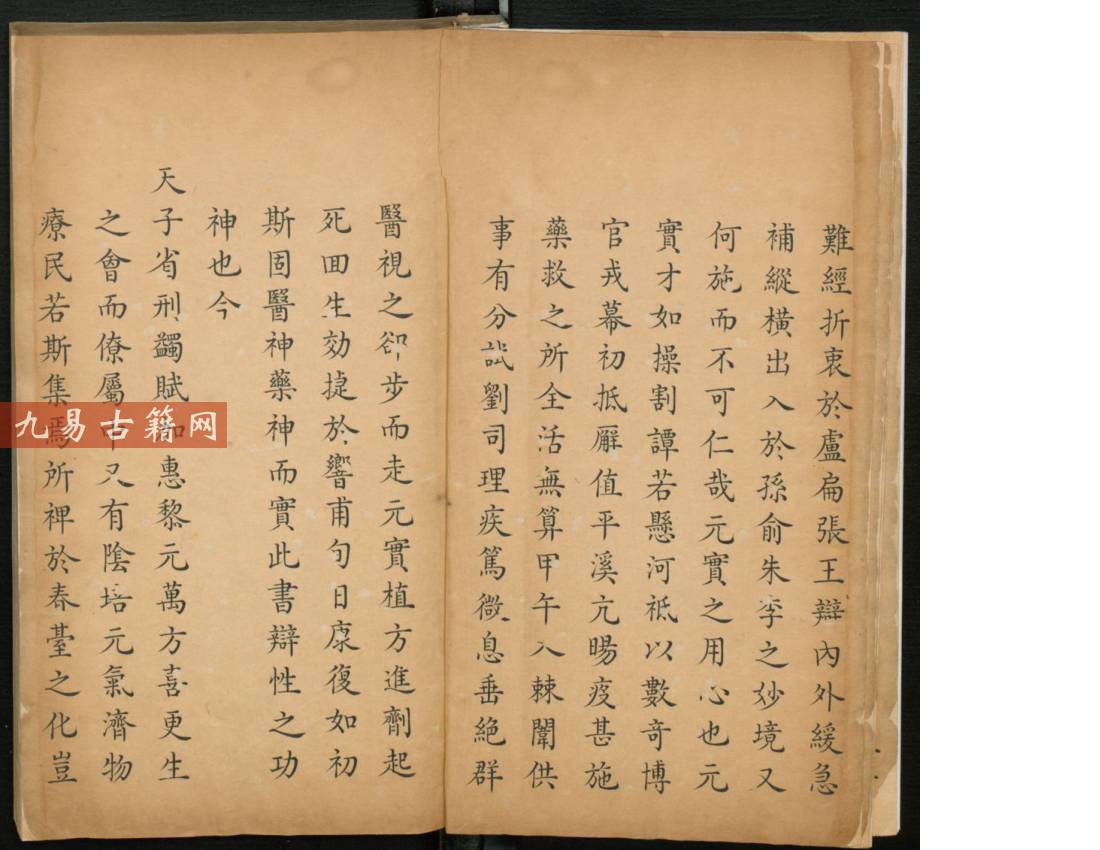 難經折衷於盧扁張王辯內外緩急
補縱橫出入於孫俞朱李之妙境又
何施而不可仁哉元實之用心也元
實才如操割譚若懸河祗以數奇博
官戎幕初抵廨值平溪亢暘疫甚施
藥救之所全活無算甲午入棘闈供
事有分試劉司理疾篤微息垂絕群
醫視之卻步而走元實植方進劑起
死回生効捷於響甫旬日康復如初
斯固醫神藥神而實此書辯性之功
神也今
天子省刑蠲賦加惠黎元萬方喜更生
之會而僚屬中又有陰培元氣濟物
療民若斯集焉所裨於春臺之化豈
九易古籍网